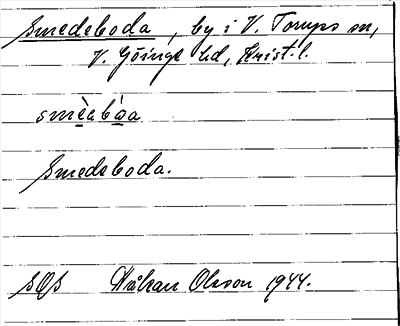 Smedeboda, by i V. Torups sn,
V. Göinge hd, Krist. l.
Smedsboda.
SOS Håkan Olsson 1944.